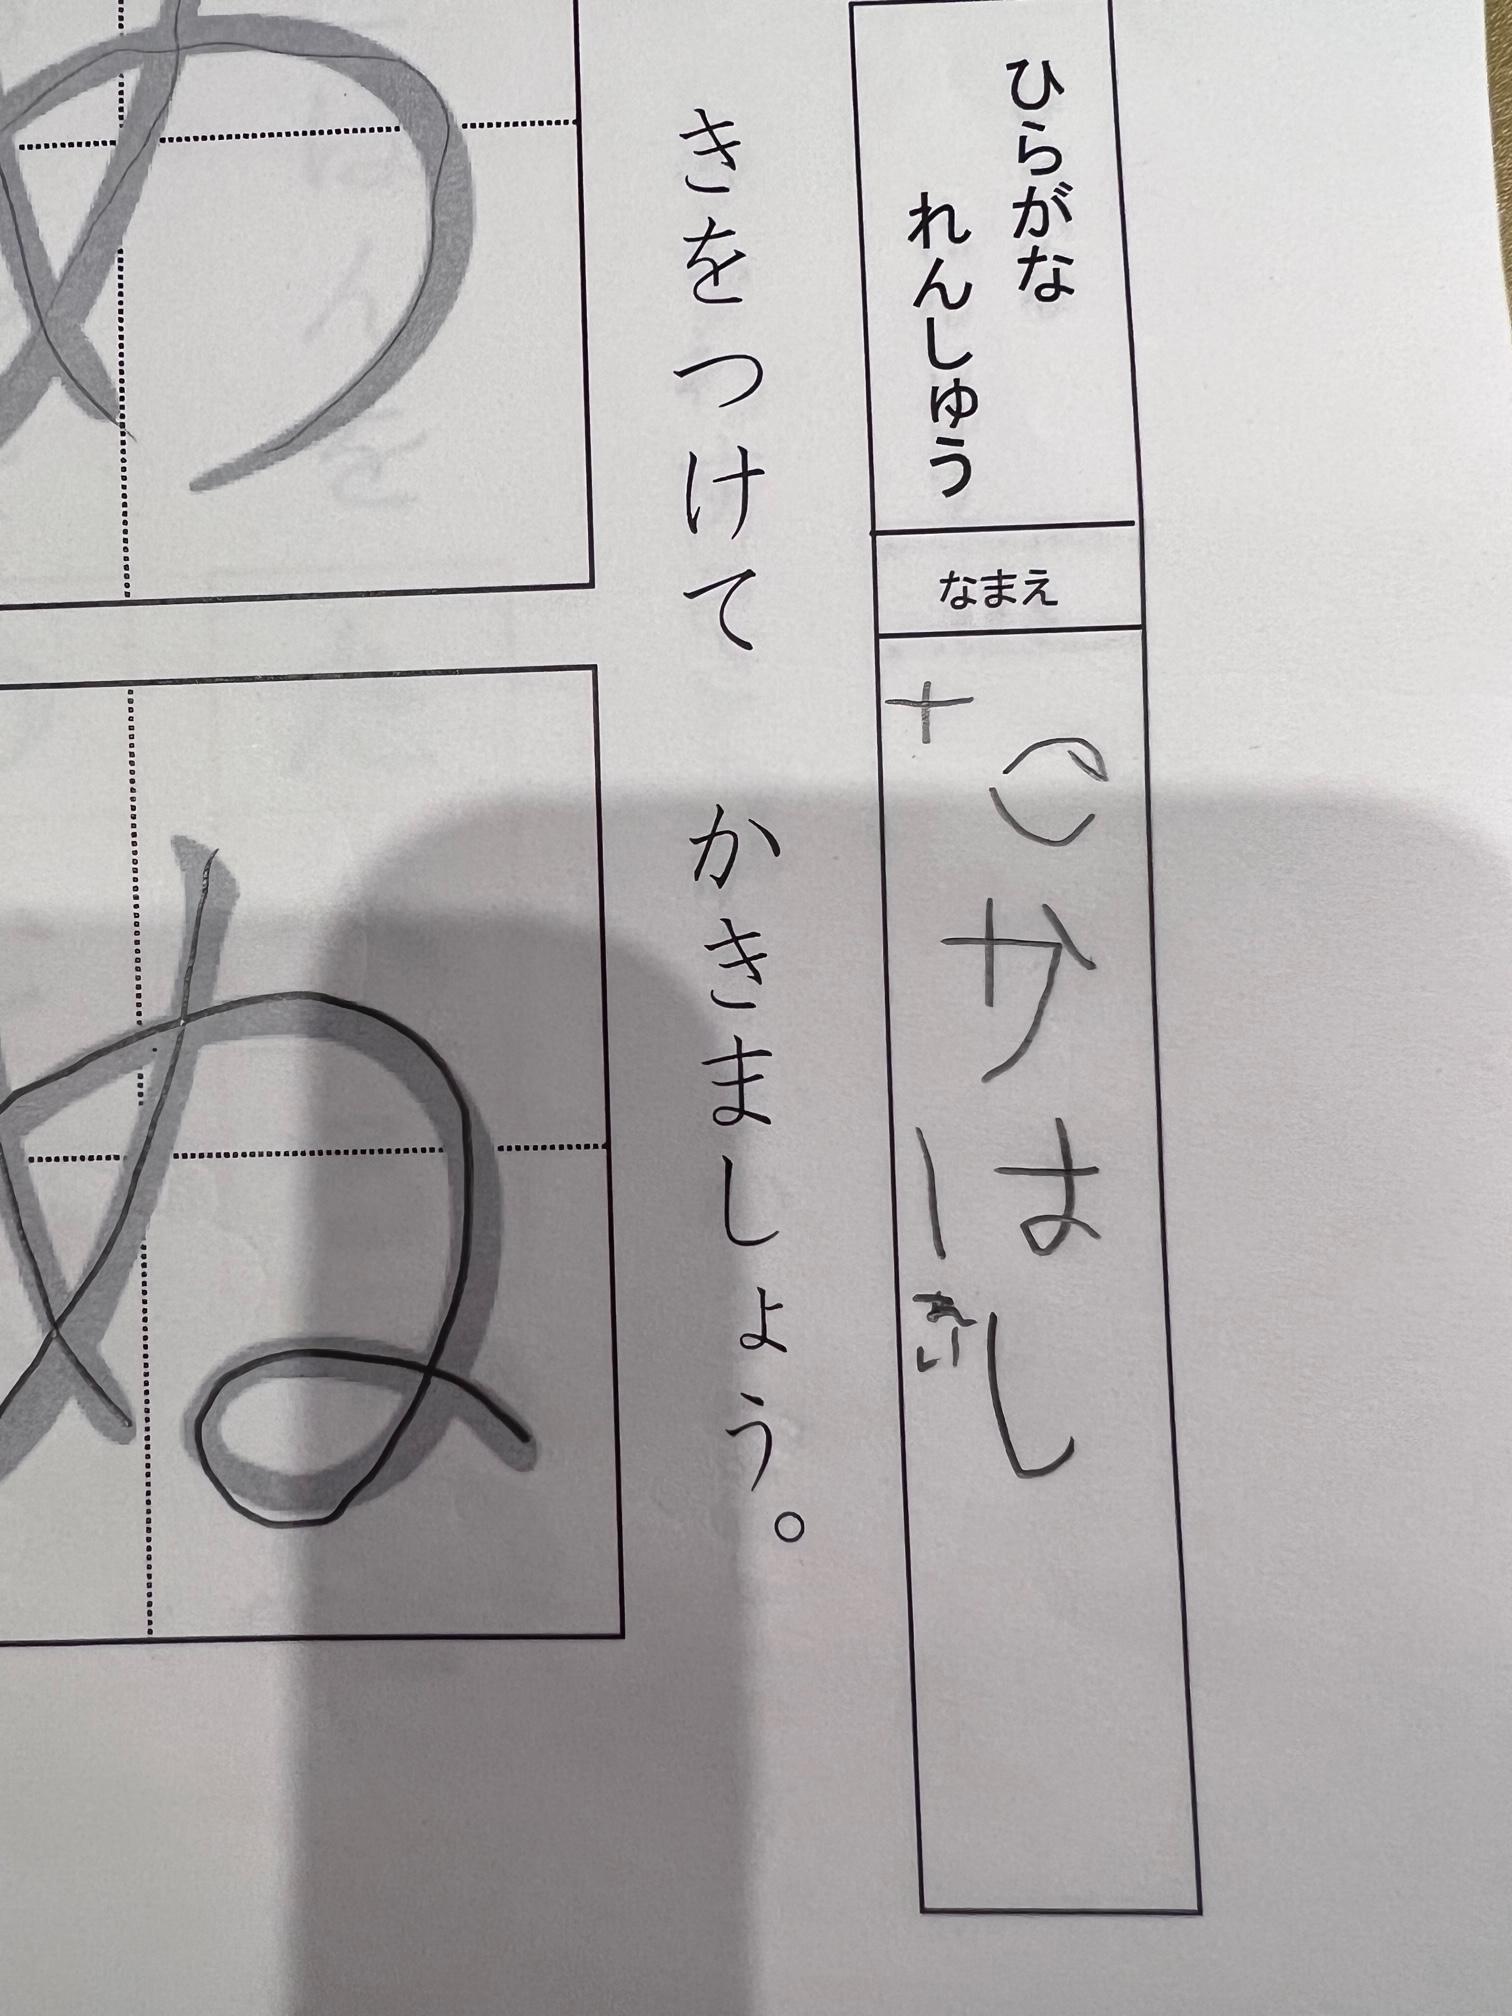 ひらがな
れんしゅう
なまえ
たかはし
きをつけて かきましょう。
め
ぬ